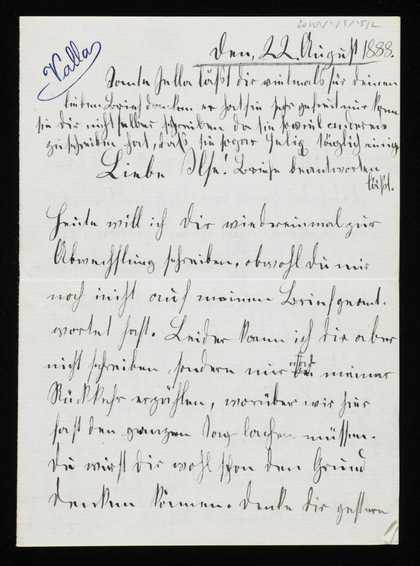 Valla
Den, 22. August 1888.
Tante Jella läßt dir vielmals für deinen
lieben Brief danken er hat sie sehr gefreut nur kann
sie dir nicht selber schreiben da sie so viel anderes
zu schreiben hat, daß sie sogar täglich einige
Liebe Ilse! Briefe beantworten
läßt.
Heute will ich dir wiedereinmal zur
Abwechslung schreiben, obwohl du mir
noch nicht auf meinen Brief geant-
wortet hast. Leider kann ich dir aber
nicht schreiben, sondern nur nach meiner
Rückkehr erzählen, worüber wir hier
fast den ganzen Tag lachen müssen.
Du wirst dir wohl schon den Grund
denken können. Denke dir gestern